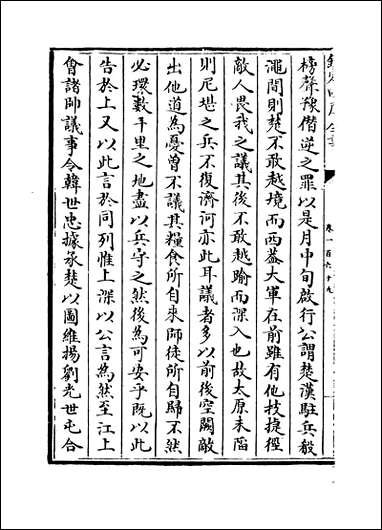 欽定四庫全書
卷一百六十九
榜聲豫僭逆之罪以是月中旬啟行公謂楚漢駐兵殽
澠間則楚不敢越境而西蓋大軍在前雖有他技捷徑
敵人畏我之議其後不敢越踰而深入也故太原未陷
則尼堪之兵不復濟河亦此耳議者多以前後空闕敵
出他道為憂曾不議其糧食所自來師徒所自歸不然
必環數千里之地盡以兵守之然後為可安乎既以此
告於上又以此言於同列惟上深以公言為然至江上
會諸帥議事令韓世忠據承楚以圖維揚劉光世屯合